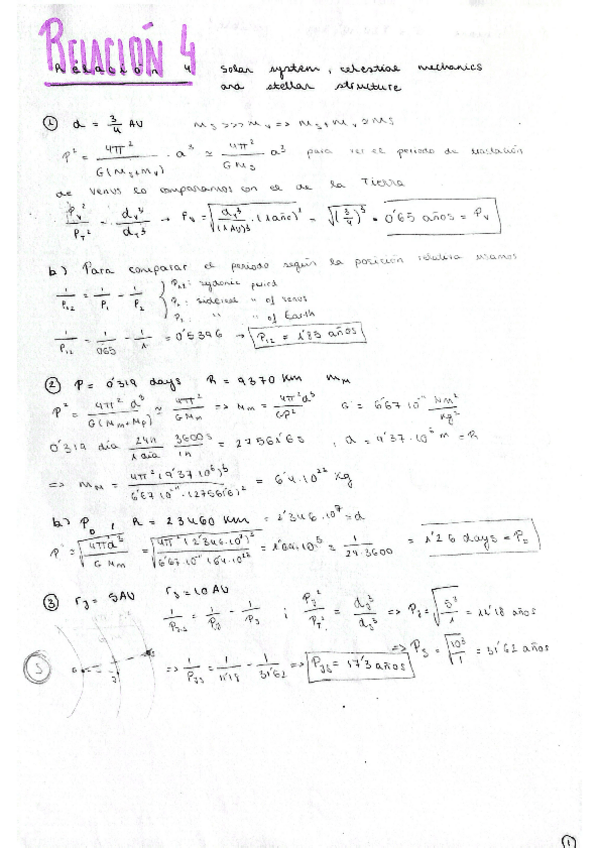 RELACIÓN 4
Relacion 4 Solar system, celestial mechanics
and stellar structure
① d = 3/4 AU   M_S >>> M_V => M_S + M_V ≈ M_S
P² = 4π²/G(M_S+M_V) · a³ ≃ 4π²/GM_S a³ para ver el periodo de traslación
de Venus lo comparamos con el de la Tierra
P_V²/P_T² = d_V³/d_T³ → P_V = √(d_V³/(1AU)³ · (1año)²) = √(3/4)³ = 0'65 años = P_V
b) Para comparar el periodo según la posición relativa usamos
1/P₁₂ = 1/P₁ - 1/P₂ { P₁₂: sydonic period
P₁: sidereal " of Venus
P₂: " " of Earth
1/P₁₂ = 1/0'65 - 1/1 = 0'5396 → P₁₂ = 1'85 años
② P = 0'319 days R = 9370 km M_M
P² = 4π² a³/G(M_M+M_P) ≃ 4π² a³/GM_M => M_M = 4π² a³/GP² G = 6'67·10⁻¹¹ Nm²/kg²
0'319 día 24h/1día 3600s/1h = 27561'65 ; a = 9'37·10⁶ m = R
=> M_M = 4π²(9'37·10⁶)³/6'67·10⁻¹¹·(27561'6)² = 6'4·10²³ kg
b) P_D, R = 23460 km = 2'346·10⁷ = d
P = √(4π²d³/GM_M) = √(4π²·(2'346·10⁷)³/6'67·10⁻¹¹·6'4·10²³) = 1'09·10⁵ = 1/24·3600 = 1'26 days = P_D
③ r_J = 5AU r_S = 10AU
1/P_JS = 1/P_J - 1/P_S ; P_J²/P_T² = d_J³/d_T³ => P_J = √(5³/1) = 11'18 años
=> P_S = √(10³/1) = 31'62 años
S J
=> 1/P_JS = 1/11'18 - 1/31'62 => P_JS = 17'3 años
1